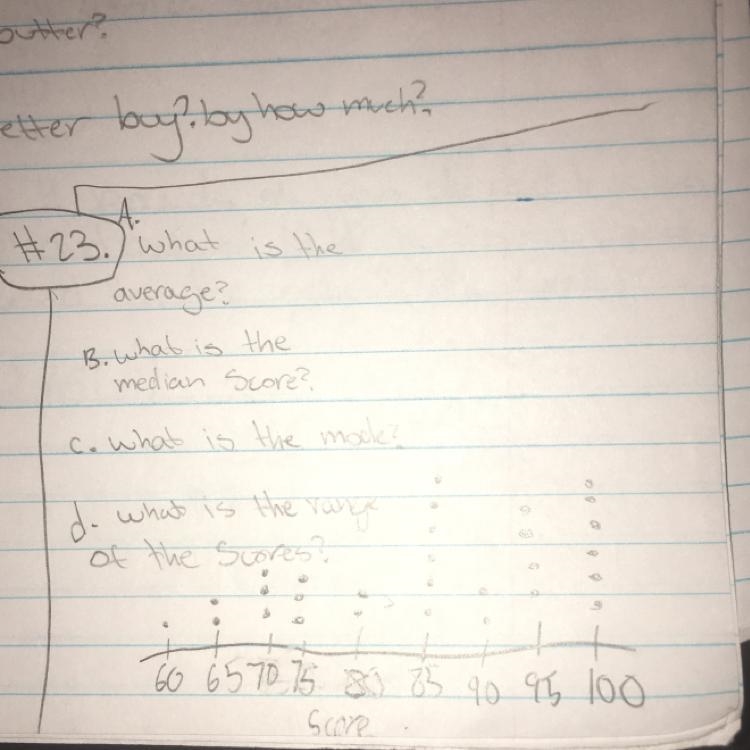 butter?
etter buy? by how much?
A.
#23. What is the
average?
B. What is the
median Score?
C. What is the mode?
d. what is the range
of the Scores?
60 65 70 75 80 85 90 95 100
Score